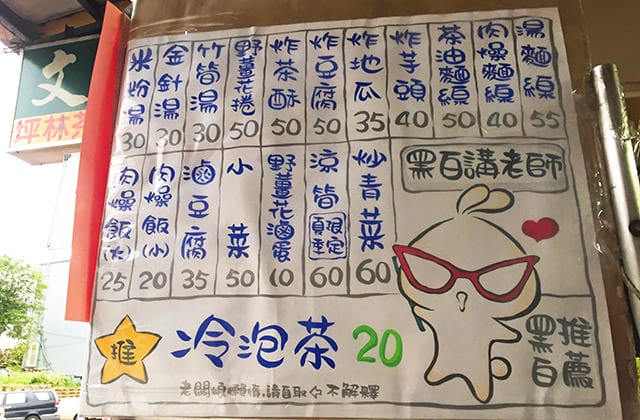 文
坪林茶
湯麵線 55
肉燥麵線 40
茶油麵線 50
炸芋頭 40
炸地瓜 35
炸豆腐 50
炸茶酥 50
野薑花捲 50
竹筍湯 30
金針湯 30
米粉湯 30
黑白講老師
炒青菜 60
涼筍 夏季限定 60
野薑花滷蛋 10
小菜 50
滷豆腐 35
肉燥飯(小) 20
肉燥飯(大) 25
推 冷泡茶 20
老闆娘懶惰,請自取 不解釋
推薦
黑白